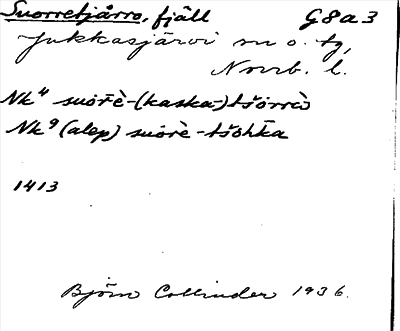 Suorretjårro, fjäll G8a3
Jukkasjärvi sn o. tg,
Norrb. l.
Nk⁴ suōřè-(kaska-)tšōrrò
Nk⁹ (alep) suōřè-tšohka
1413
Björn Collinder 1936.